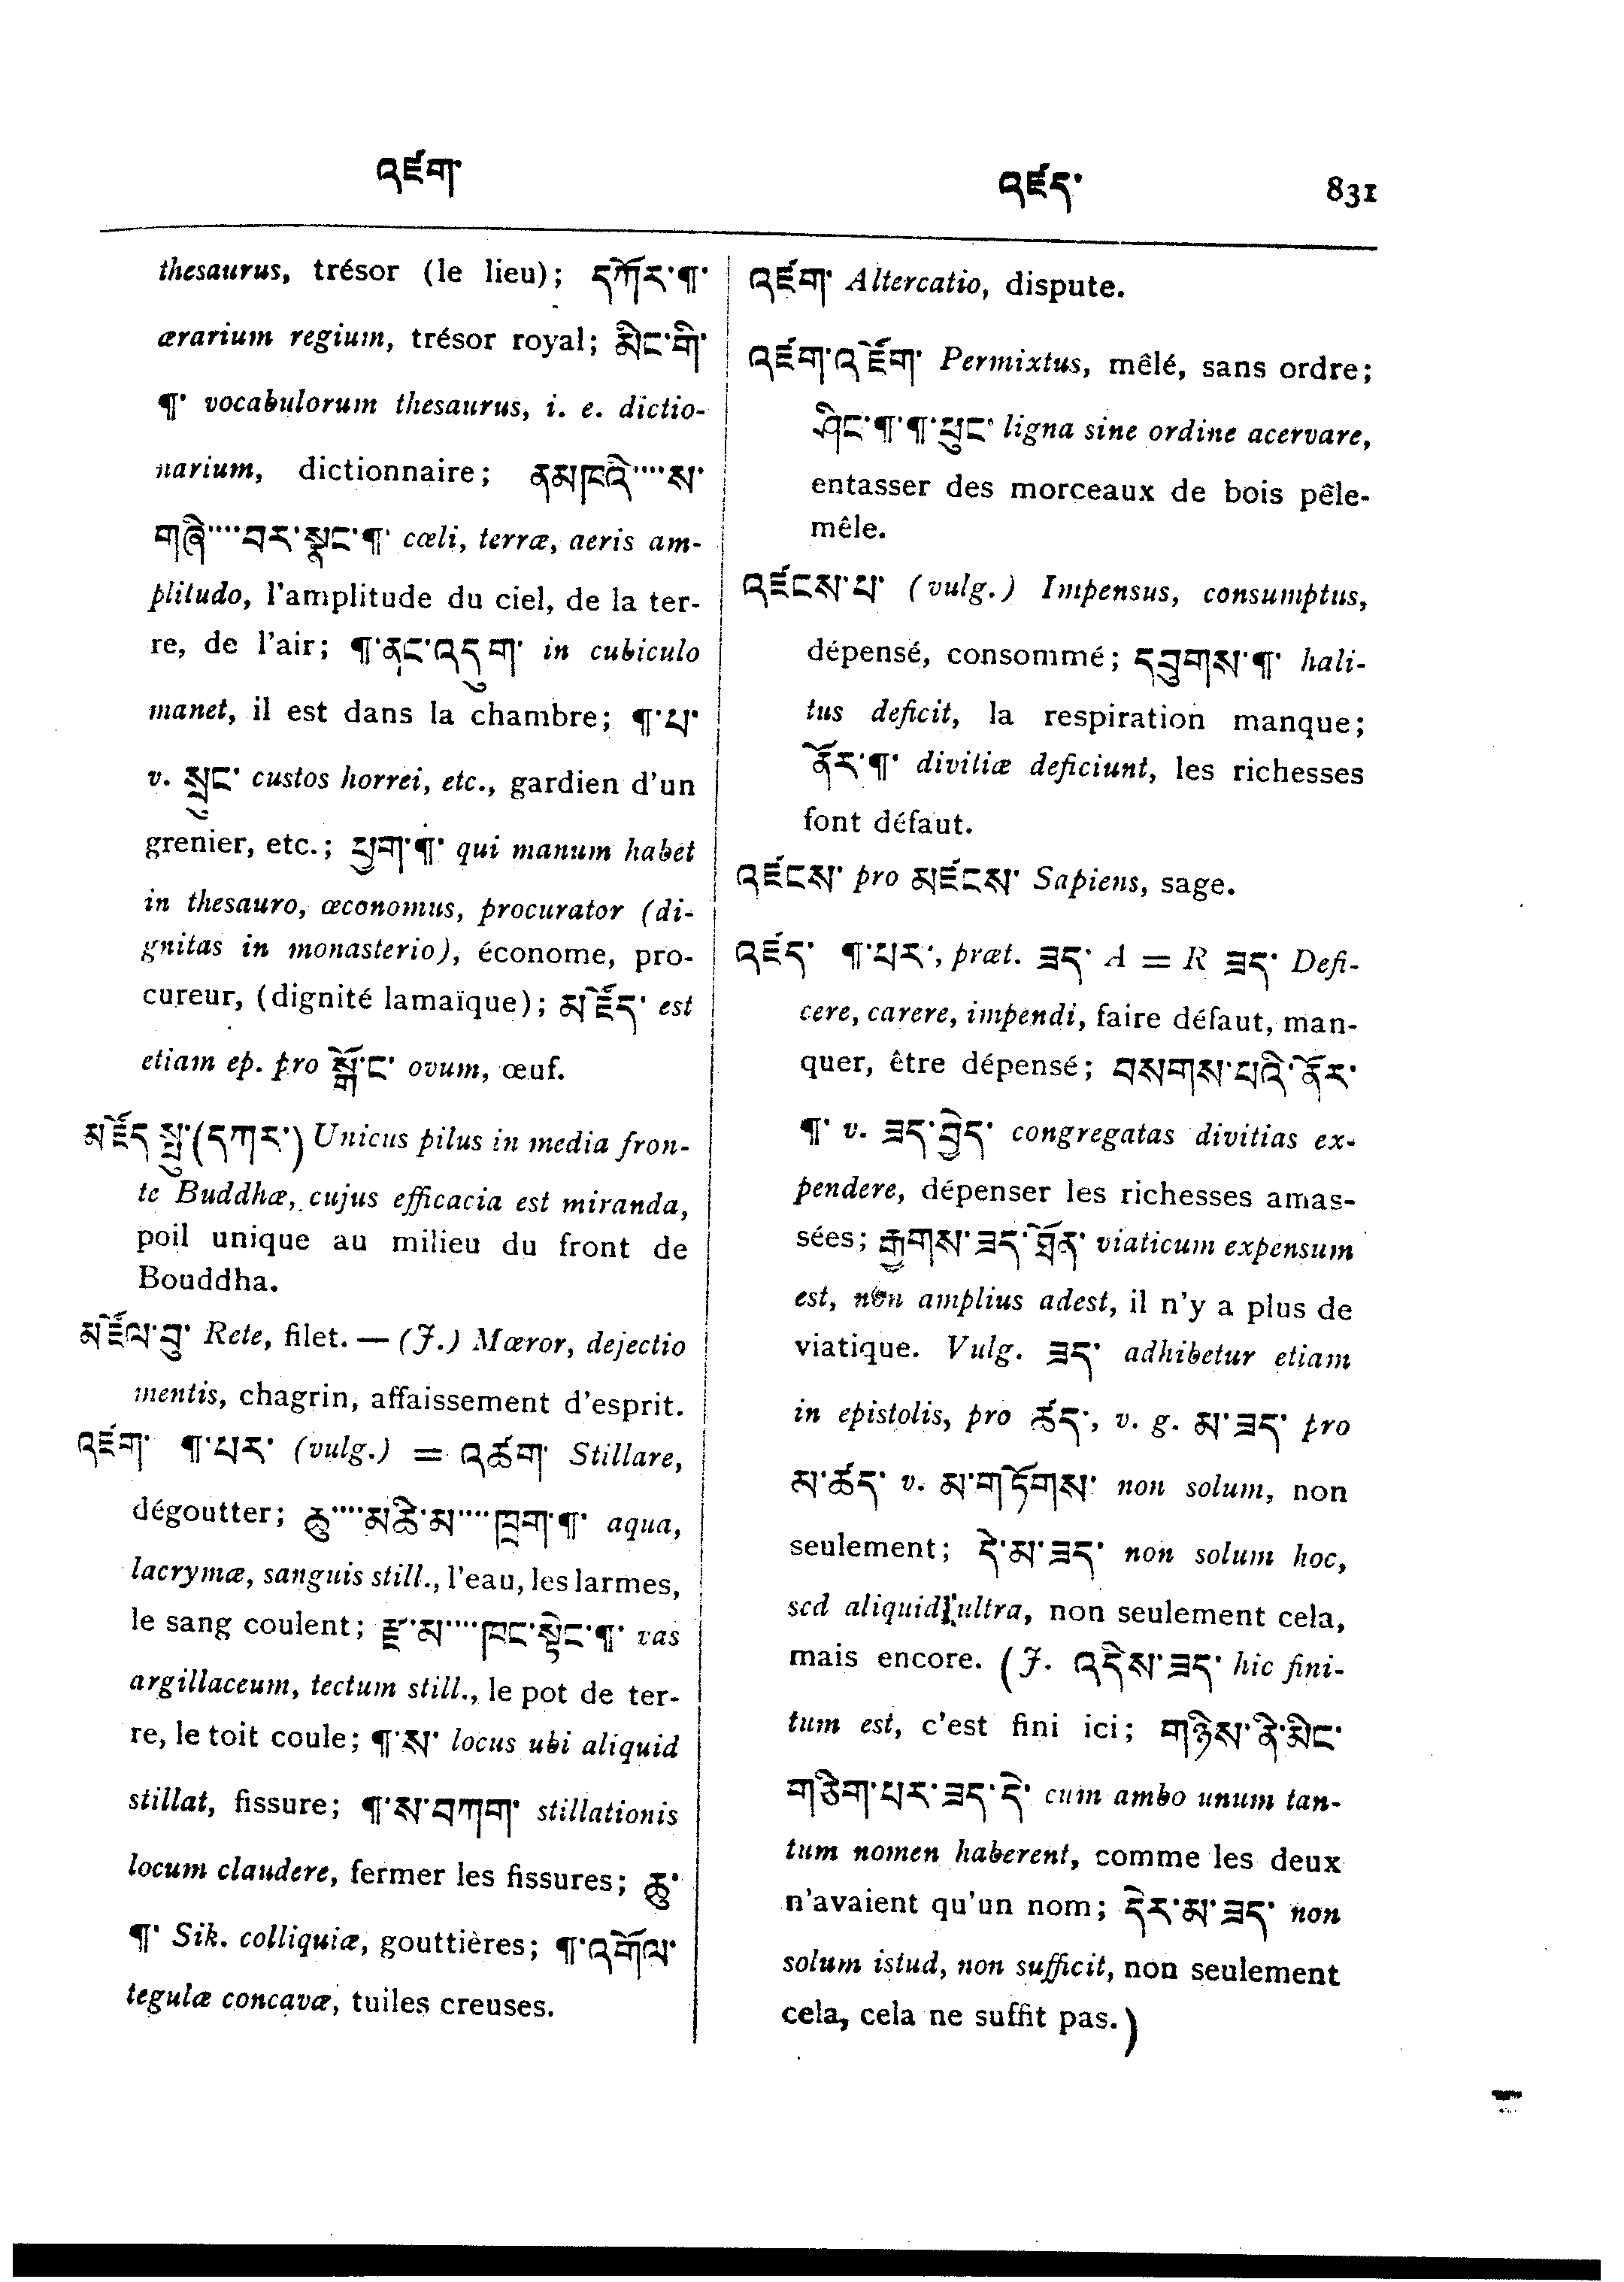 འཛག་
འཛད་ 831
thesaurus, trésor (le lieu); དཀོར་¶་
ærarium regium, trésor royal; མིང་གི་
¶་ vocabulorum thesaurus, i. e. dictio-
narium, dictionnaire; ནམཁའི་····ས་
གཞི་····བར་སྣང་¶་ cœli, terræ, aeris am-
plitudo, l'amplitude du ciel, de la ter-
re, de l'air; ¶་ནང་འདུག་ in cubiculo
manet, il est dans la chambre; ¶་པ་
v. སྲུང་ custos horrei, etc., gardien d'un
grenier, etc.; ཕྱག་¶་ qui manum habet
in thesauro, œconomus, procurator (di-
gnitas in monasterio), économe, pro-
cureur, (dignité lamaïque); མཛོད་ est
etiam ep. pro སྒོ་ང་ ovum, œuf.
མཛོད་སྤུ་(དཀར་) Unicus pilus in media fron-
te Buddhæ, cujus efficacia est miranda,
poil unique au milieu du front de
Bouddha.
མཛོལ་བུ་ Rete, filet. — (J.) Mœror, dejectio
mentis, chagrin, affaissement d'esprit.
འཛག་ ¶་པར་ (vulg.) = འཚག་ Stillare,
dégoutter; ཆུ་····མཆི་མ་····ཁྲག་¶་ aqua,
lacrymæ, sanguis still., l'eau, les larmes,
le sang coulent; རྫ་མ་····ཁང་སྟེང་¶་ vas
argillaceum, tectum still., le pot de ter-
re, le toit coule; ¶་ས་ locus ubi aliquid
stillat, fissure; ¶་ས་བཀག་ stillationis
locum claudere, fermer les fissures; ཆུ་
¶་ Sik. colliquiæ, gouttières; ¶་འགོལ་
tegulæ concavæ, tuiles creuses.
འཛག་ Altercatio, dispute.
འཛག་འཛོག་ Permixtus, mêlé, sans ordre;
ཤིང་¶་¶་ཕུང་ ligna sine ordine acervare,
entasser des morceaux de bois pêle-
mêle.
འཛངས་པ་ (vulg.) Impensus, consumptus,
dépensé, consommé; དབུགས་¶་ hali-
tus deficit, la respiration manque;
ནོར་¶་ divitiæ deficiunt, les richesses
font défaut.
འཛངས་ pro མཛངས་ Sapiens, sage.
འཛད་ ¶་པར་, præt. ཟད་ A = R ཟད་ Defi-
cere, carere, impendi, faire défaut, man-
quer, être dépensé; བསགས་པའི་ནོར་
¶་ v. ཟད་བྱེད་ congregatas divitias ex-
pendere, dépenser les richesses amas-
sées; རྒྱགས་ཟད་ཐོན་ viaticum expensum
est, non amplius adest, il n'y a plus de
viatique. Vulg. ཟད་ adhibetur etiam
in epistolis, pro ཚད་, v. g. མ་ཟད་ pro
མ་ཚད་ v. མ་གཏོགས་ non solum, non
seulement; དེ་མ་ཟད་ non solum hoc,
sed aliquid ultra, non seulement cela,
mais encore. (J. འདེས་ཟད་ hic fini-
tum est, c'est fini ici; གཉིས་ནི་མིང་
གཅིག་པར་ཟད་དེ་ cum ambo unum tan-
tum nomen haberent, comme les deux
n'avaient qu'un nom; དེར་མ་ཟད་ non
solum istud, non sufficit, non seulement
cela, cela ne suffit pas.)